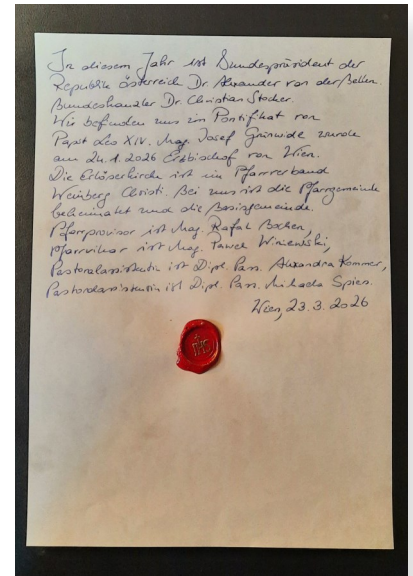 In diesem Jahr ist Bundespräsident der
Republik Österreich Dr. Alexander van der Bellen.
Bundeskanzler Dr. Christian Stocker.
Wir befinden uns im Pontifikat von
Papst Leo XIV. Mag. Josef Grünwidl wurde
am 24.1.2026 Erzbischof von Wien.
Die Erlöserkirche ist im Pfarrverband
Weinberg Christi. Bei uns ist die Pfarrgemeinde
beheimatet und die Basisgemeinde.
Pfarrprovisor ist Mag. Rafal Bochen,
Pfarrvikar ist Mag. Pawel Winiewski,
Pastoralassistentin ist Dipl. Pass. Alexandra Kommer,
Pastoralassistentin ist Dipl. Pass. Michaela Spies.
Wien, 23.3.2026
IHS